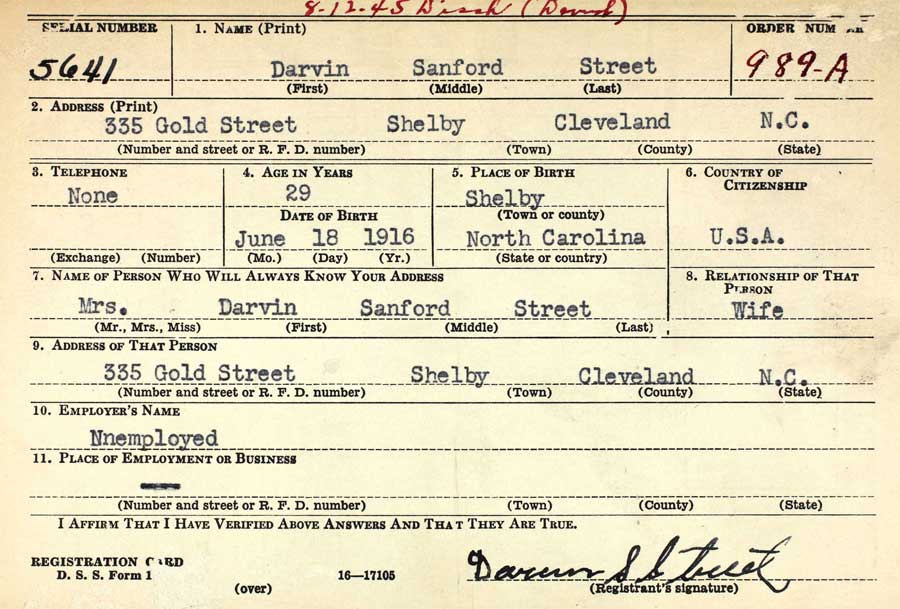 8-12-45 Disch (David)
SERIAL NUMBER 1. NAME (Print) ORDER NUM
5641 Darvin Sanford Street 989-A
(First) (Middle) (Last)
2. ADDRESS (Print)
335 Gold Street Shelby Cleveland N.C.
(Number and street or R. F. D. number) (Town) (County) (State)
3. TELEPHONE 4. AGE IN YEARS 5. PLACE OF BIRTH 6. COUNTRY OF
CITIZENSHIP
None 29 Shelby
DATE OF BIRTH (Town or county)
June 18 1916 North Carolina U.S.A.
(Exchange) (Number) (Mo.) (Day) (Yr.) (State or country)
7. NAME OF PERSON WHO WILL ALWAYS KNOW YOUR ADDRESS 8. RELATIONSHIP OF THAT
PERSON
Mrs. Darvin Sanford Street Wife
(Mr., Mrs., Miss) (First) (Middle) (Last)
9. ADDRESS OF THAT PERSON
335 Gold Street Shelby Cleveland N.C.
(Number and street or R. F. D. number) (Town) (County) (State)
10. EMPLOYER'S NAME
Nnemployed
11. PLACE OF EMPLOYMENT OR BUSINESS
(Number and street or R. F. D. number) (Town) (County) (State)
I AFFIRM THAT I HAVE VERIFIED ABOVE ANSWERS AND THAT THEY ARE TRUE.
REGISTRATION CARD
D. S. S. Form 1 16—17105 Darvin S Street
(over) (Registrant's signature)